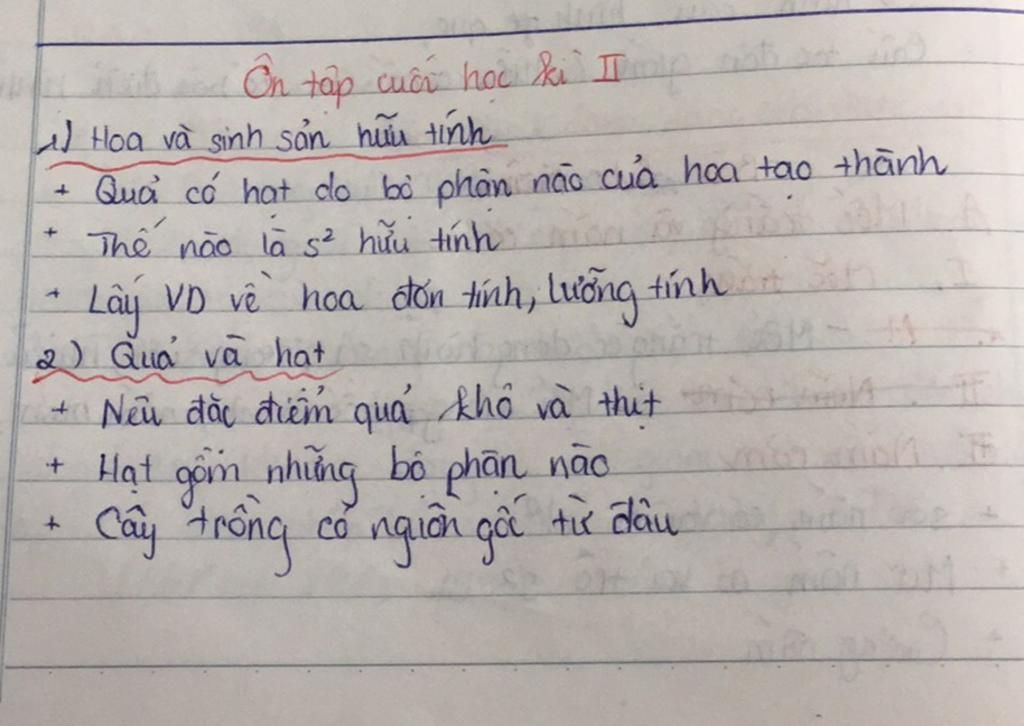 Ôn tập cuối học kì II
1) Hoa và sinh sản hữu tính
+ Quả có hạt do bộ phận nào của hoa tạo thành
+ Thế nào là s² hữu tính
+ Lấy VD về hoa đơn tính, lưỡng tính
2) Quả và hạt
+ Nêu đặc điểm quả khô và thịt
+ Hạt gồm những bộ phận nào
+ Cây trồng có nguồn gốc từ đâu